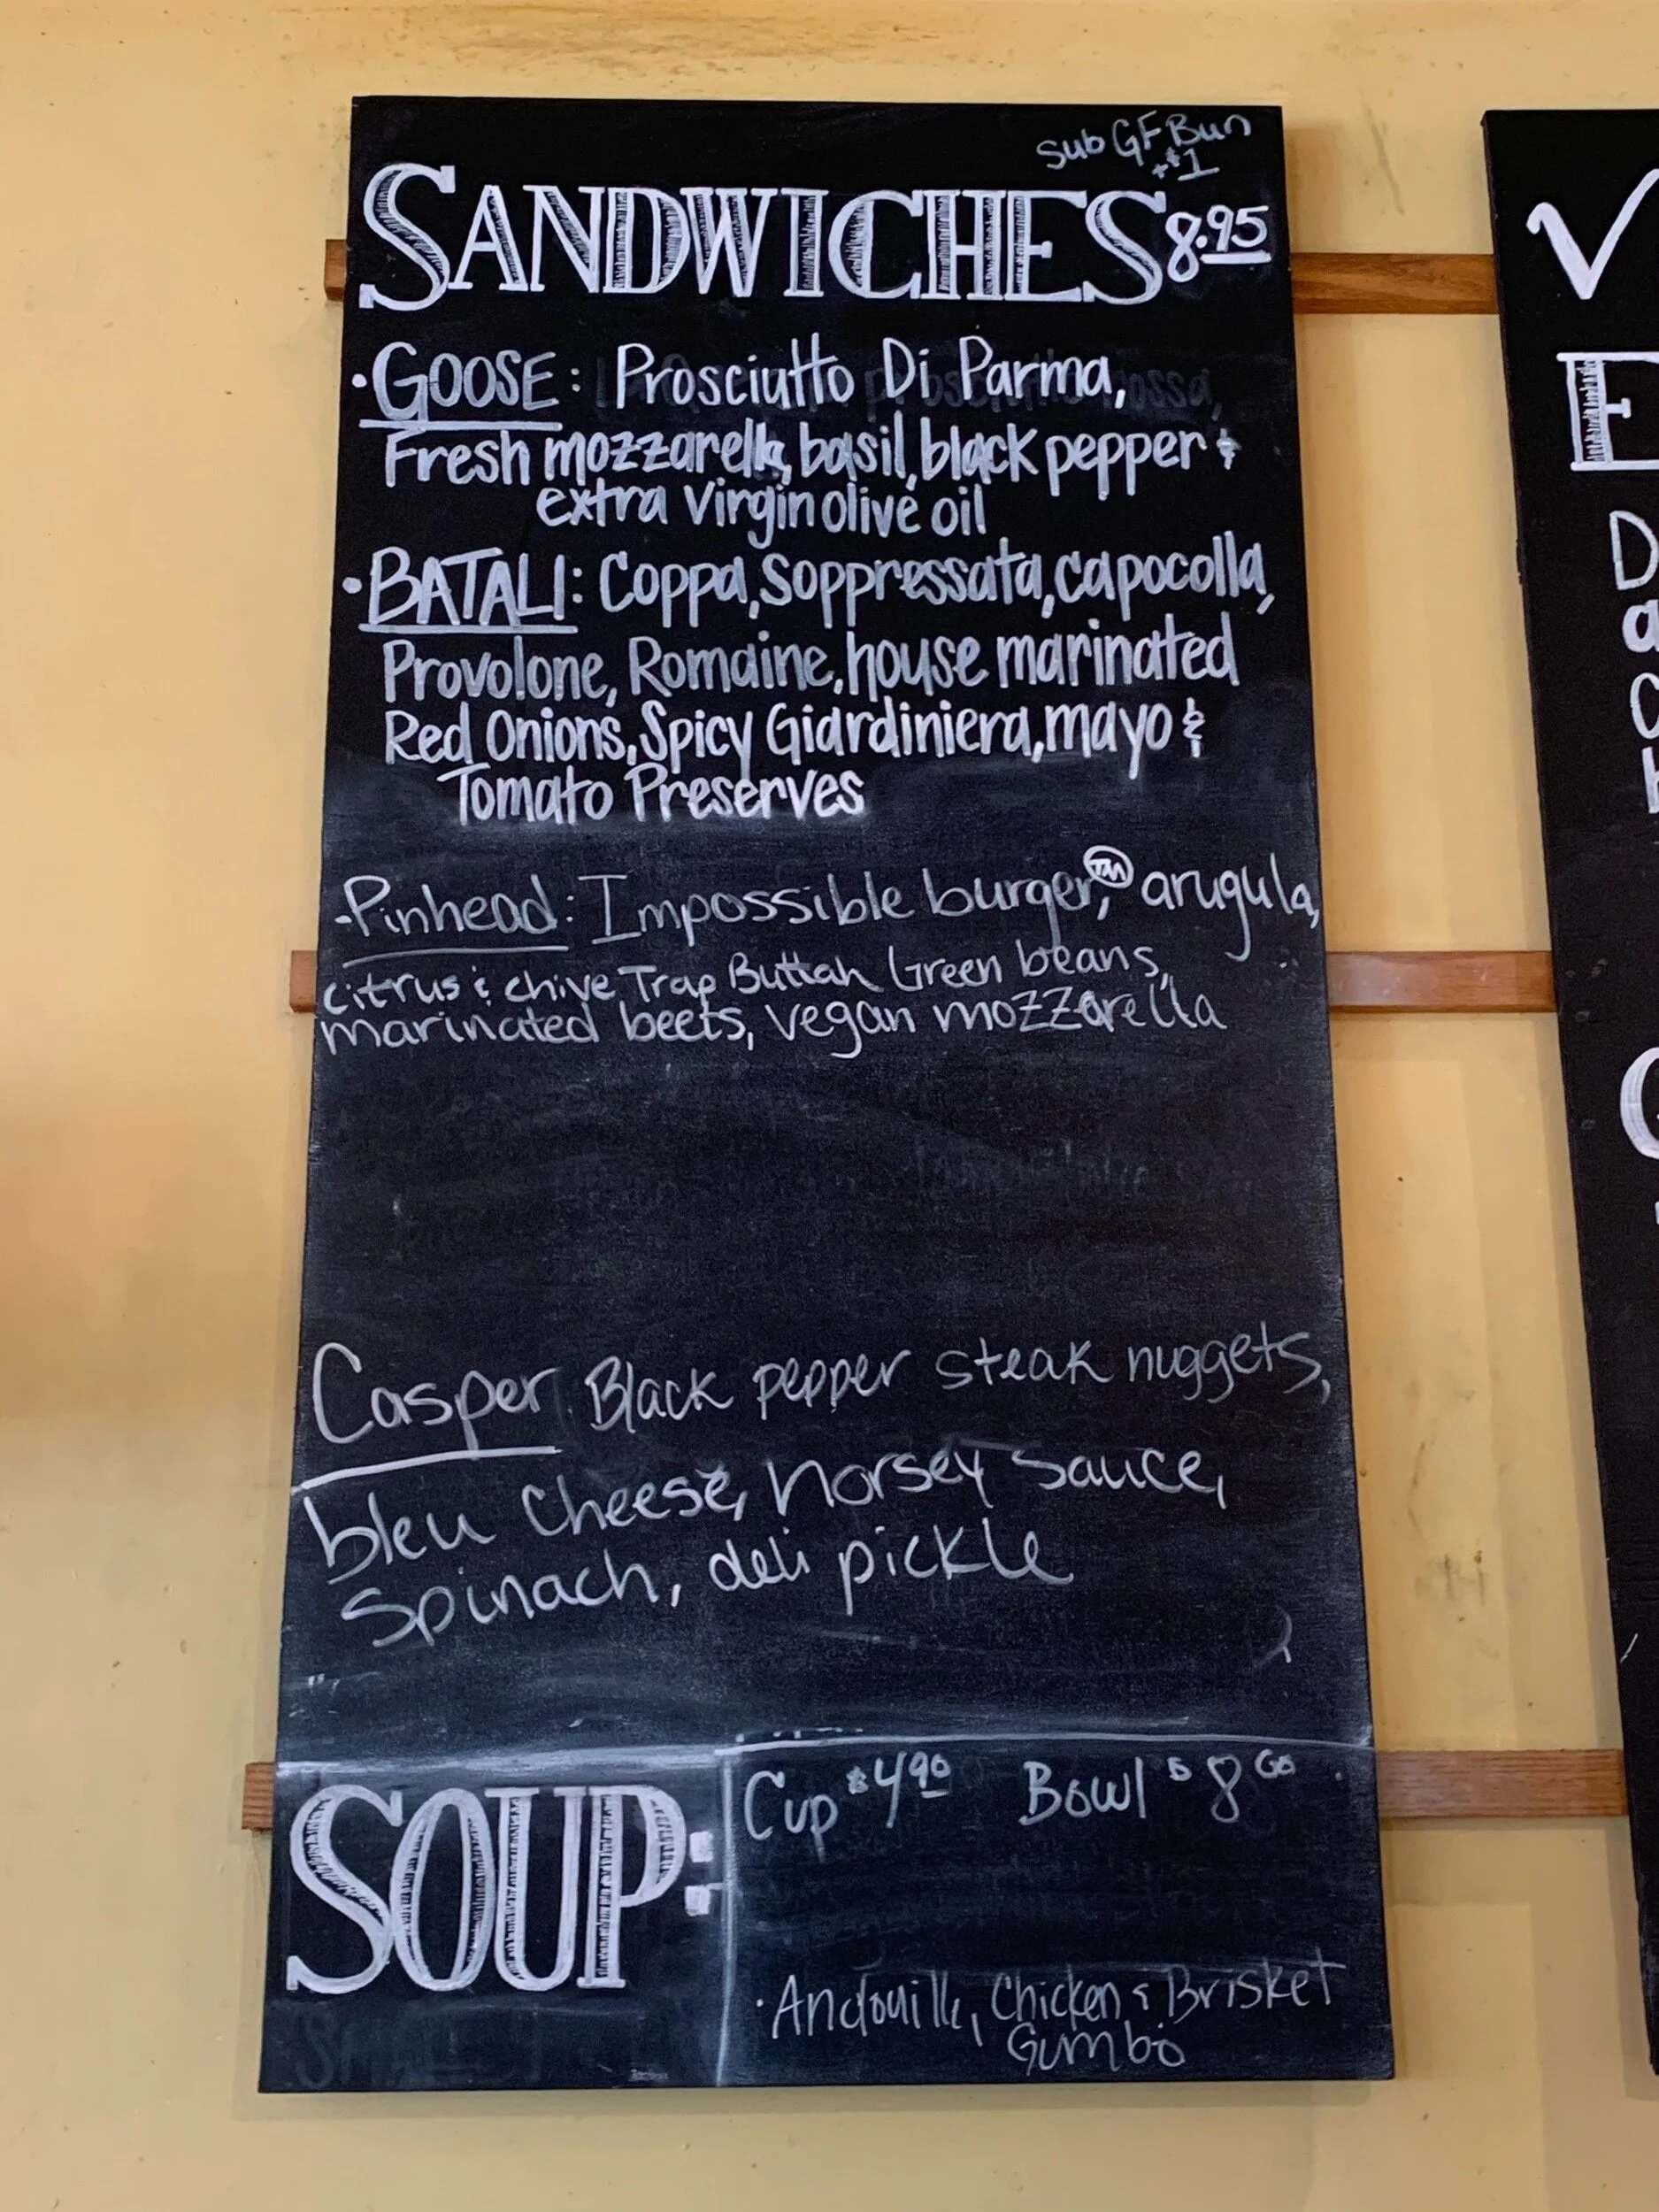 Sub GF Bun
+$1
SANDWICHES 8.95
• GOOSE: Prosciutto Di Parma,
Fresh mozzarella, basil, black pepper &
extra virgin olive oil
• BATALI: Coppa, Soppressata, capocolla,
Provolone, Romaine, house marinated
Red Onions, Spicy Giardiniera, mayo &
Tomato Preserves
• Pinhead: Impossible burger,™ arugula,
citrus & chive Trap Buttah Green beans,
marinated beets, vegan mozzarella
Casper Black pepper steak nuggets,
bleu cheese, horsey sauce,
Spinach, deli pickle
SOUP:
Cup $4.90 Bowl $8
• Andouille, Chicken & Brisket
Gumbo